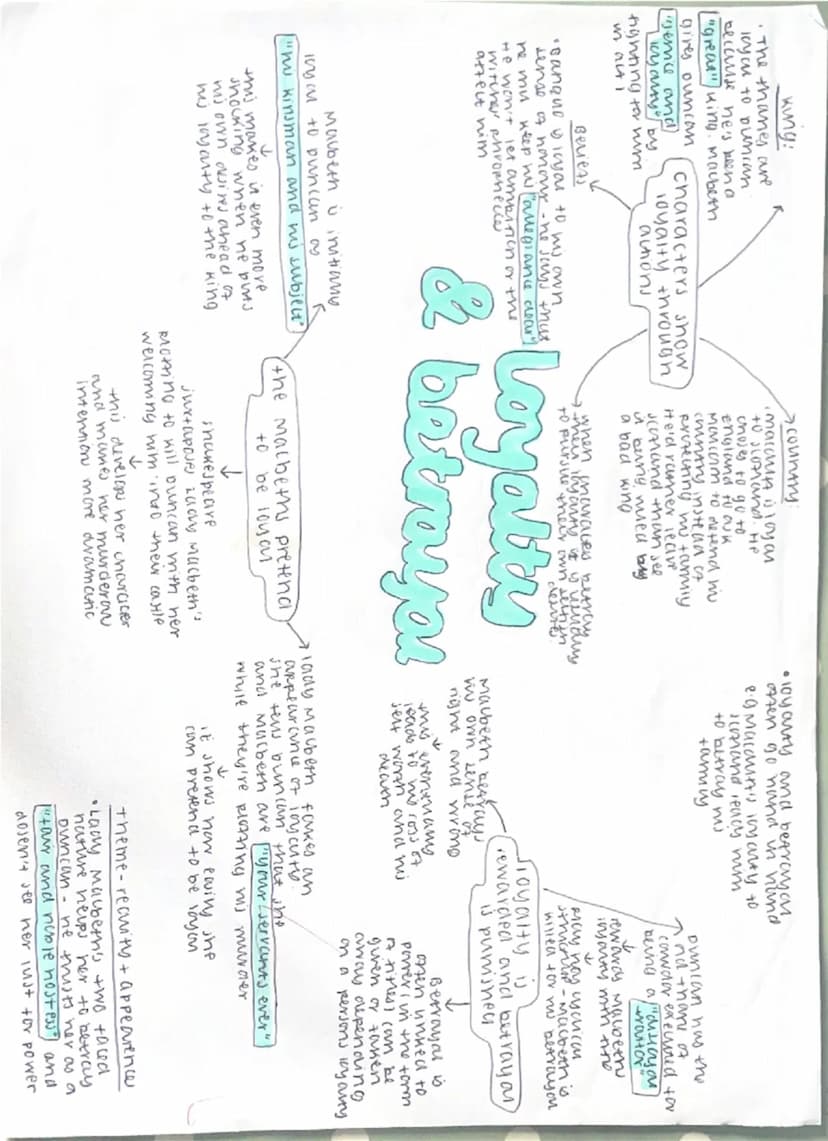 loyalty
& betrayal
characters show
loyalty through
actions
king:
• The thanes are
loyal to duncan
because he's been a
"great" king. Macbeth
gives duncan
"service and
loyalty" by
fighting for him
in act 1
beliefs
• banquo is loyal to his own
sense of honour - he says that
he must keep his "allegiance clear"
he won't let ambition or the
witches' prophecies
affect him
country:
• macduff is loyal
to scotland. He
chose to go to
england to ask
malcolm to defend his
country instead of
protecting his family
He'd rather leave
scotland than see
it being ruled by
a bad king
when characters betray
their loyalty it is usually
to pursue their own selfish
desires
• loyalty and betrayal
often go hand in hand
e.g Macduff's loyalty to
scotland leads him
to betray his
family
the Macbeths pretend
to be loyal
Macbeth is initially
loyal to duncan as
"his kinsman and his subject"
this makes it even more
shocking when he puts
his own desires ahead of
his loyalty to the king
shakespeare
juxtaposes lady Macbeth's
plotting to kill duncan with her
welcoming him into their castle
this develops her character
and makes her murderous
intention more dramatic
lady Macbeth fakes an
appearance of loyalty
she tells duncan that she
and Macbeth are "your servants ever"
while they're plotting his murder
it shows how easily she
can pretend to be loyal
loyalty is
rewarded and betrayal
is punished
Macbeth betrays
his own sense of
right and wrong
this eventually
leads to his loss of
self worth and his
death
duncan has the
old thane of
cawdor executed for
being a "disloyal
traitor"
rewards Macbeth's
loyalty with the
title
Macbeth is
killed for his betrayal
betrayal is
often linked to
power in the town
a title can be
given or taken
away depending
on a persons loyalty
theme - reality + appearance
• Lady Macbeth's two faced
nature helps her to betray
duncan - he trusts her as a
"fair and noble hostess" and
doesn't see her lust for power